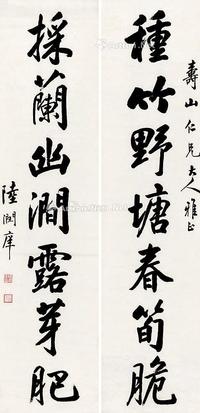 種竹野塘春筍脆
壽山仁兄大人雅正
採蘭幽澗露芽肥
陸潤庠